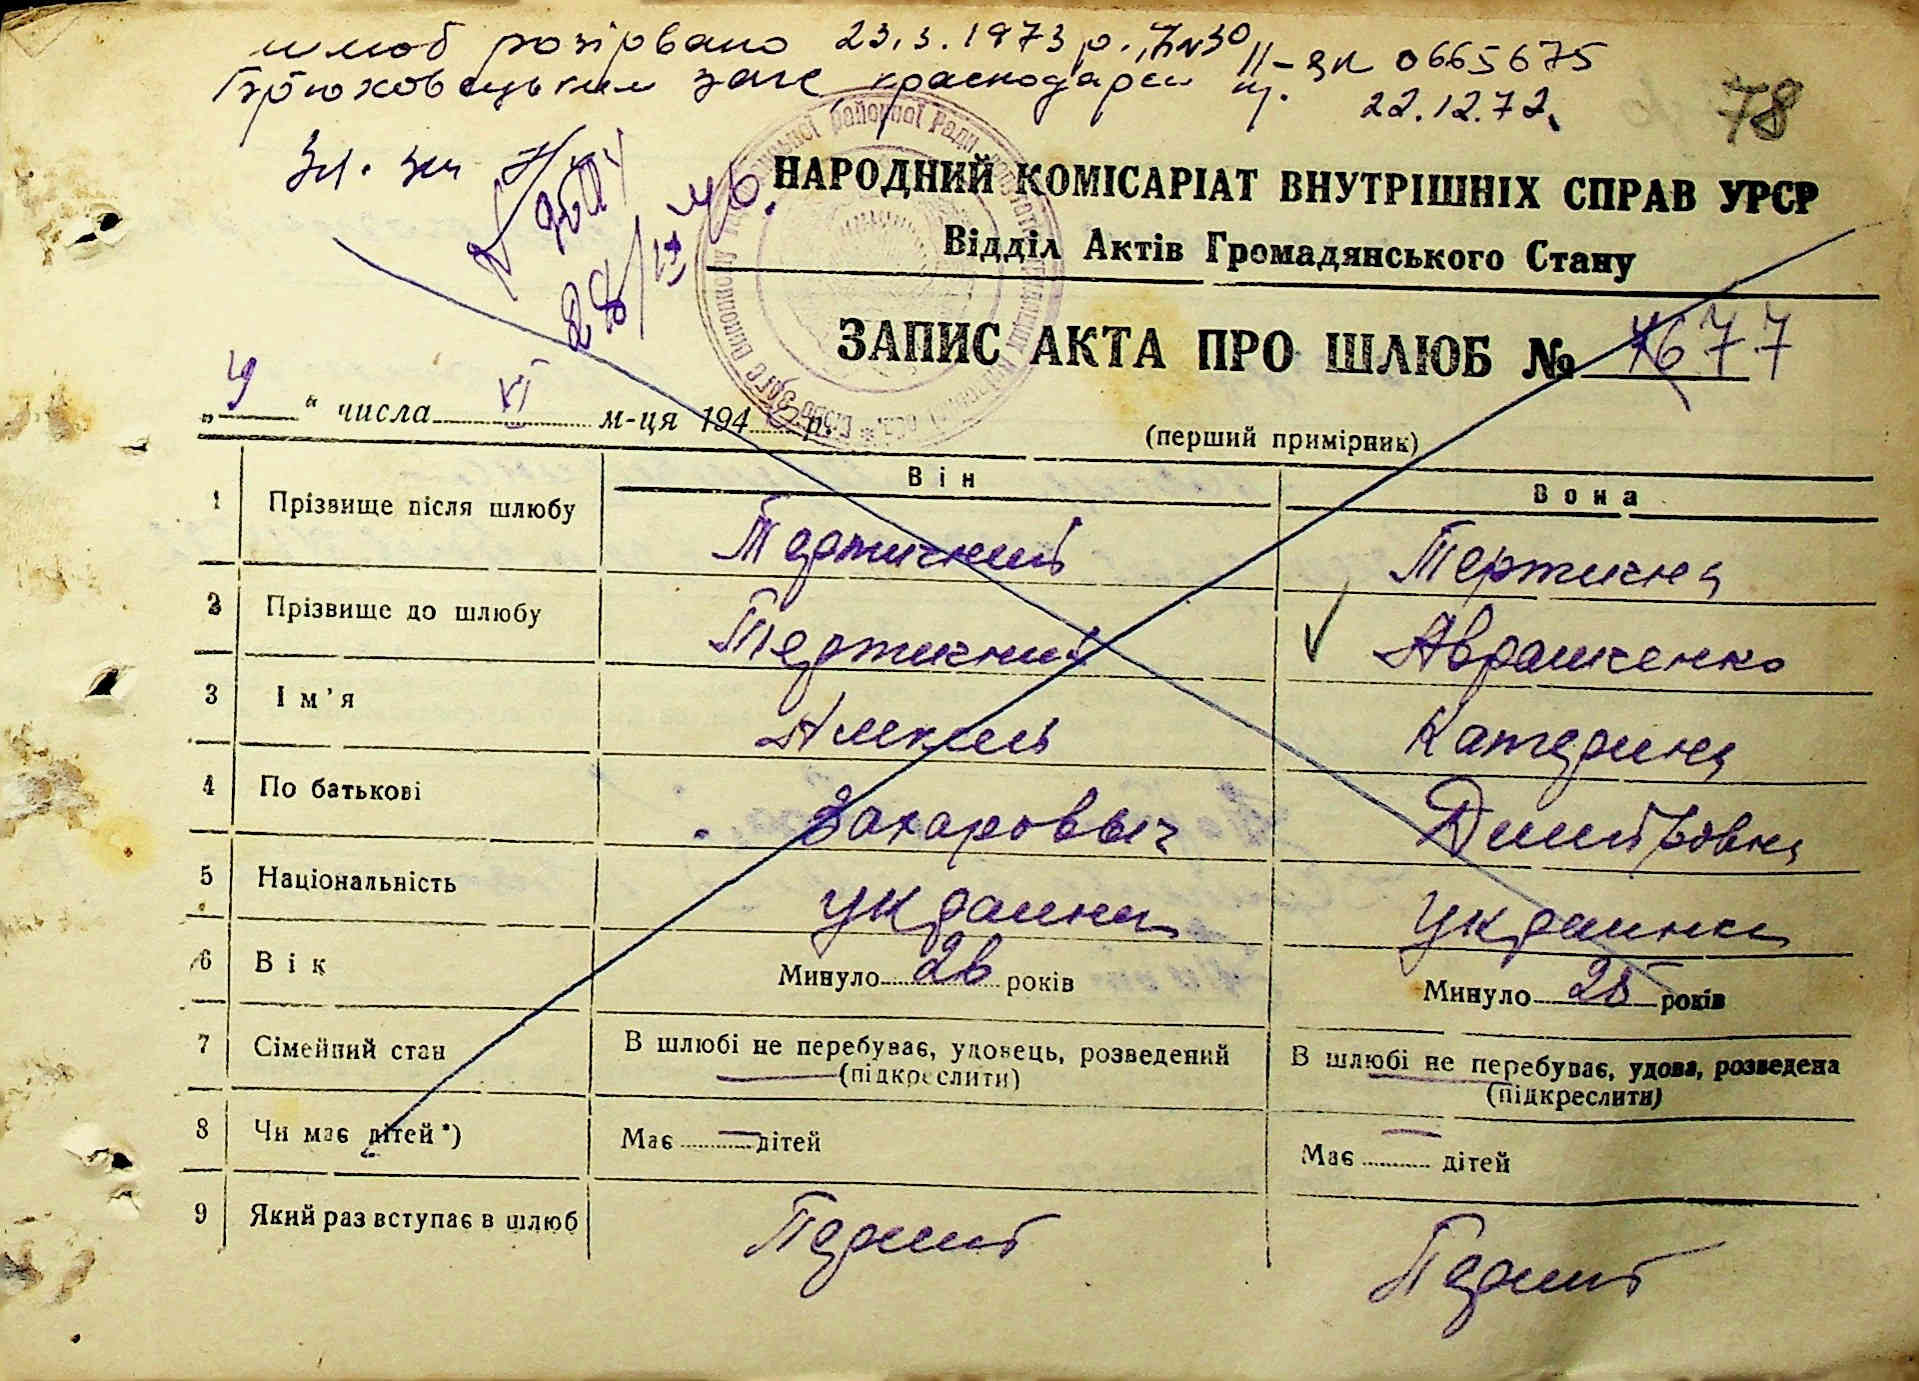 шлюб розірвано 23.3.1973 р. №30 II-ЭЛ 0665675
Брюховецьким загс краснодарськ 22.12.72.
78
НАРОДНИЙ КОМІСАРІАТ ВНУТРІШНІХ СПРАВ УРСР
Відділ Актів Громадянського Стану
ЗАПИС АКТА ПРО ШЛЮБ № 677
„ 4 “ числа VI м-ця 194 р.
(перший примірник)
Він Вона
1 Прізвище після шлюбу Тертичний Тертична
2 Прізвище до шлюбу Тертичний Аврамченко
3 Ім'я Алексей Катерина
4 По батькові Захаровыч Дмитровна
5 Національність украинец украинка
6 Вік Минуло 26 років Минуло 25 років
7 Сімейний стан В шлюбі не перебуває, удовець, розведений В шлюбі не перебуває, удова, розведена
(підкреслити) (підкреслити)
8 Чи має дітей*) Має — дітей Має — дітей
9 Який раз вступає в шлюб Перший Перший